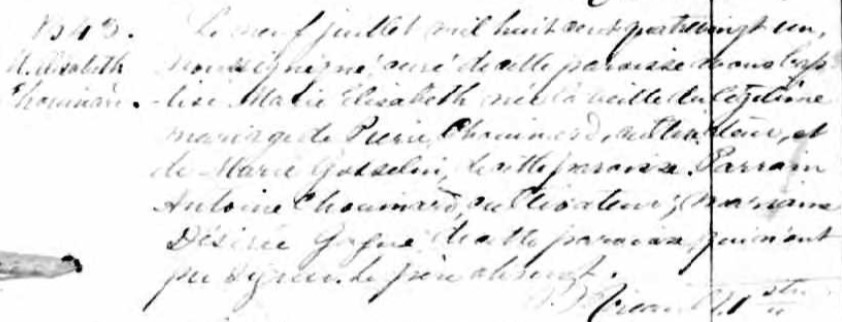 B43. Le neuf juillet mil huit cent quatrevingt un,
M. Elisabeth nous soussigné, curé de cette paroisse avons bap
Chouinard. -tisé Marie Elisabeth née la veille du légitime
mariage de Pierre Chouinard, cultivateur, et
de Marie Gosselin, de cette paroisse. Parrain
Antoine Chouinard, cultivateur; marraine
Désirée Gagné de cette paroisse, qui n'ont
pu signer. Le père absent.
Ptre